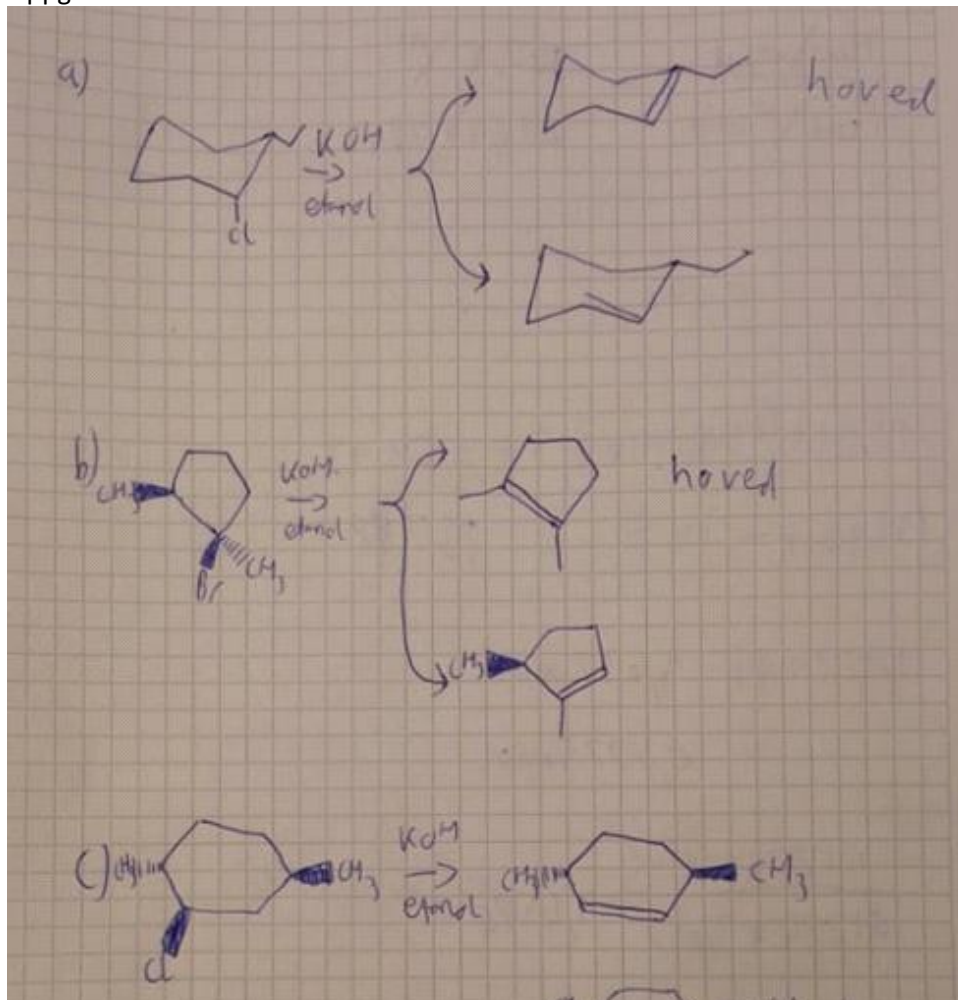 a)
KOH
etanol
cl
hoved
b)
CH3
KOH
etanol
Br
CH3
hoved
CH3
c)
CH3
CH3
Cl
KOH
etanol
CH3
CH3